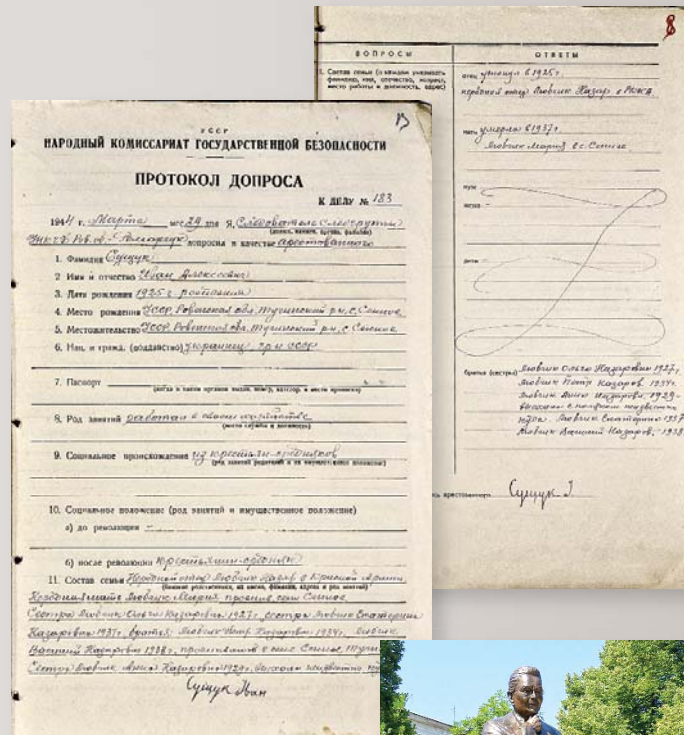 8
ВОПРОСЫ ОТВЕТЫ
1. Состав семьи (о каждом указывать
фамилию, имя, отчество, возраст,
место работы и должность, адрес)
отец умер в 1925 г.
неродной отец Любчик Назар в РККА
мать умерла 1937 г.
Любчик Мария в с. Сенное
муж
жена
дети
братья (сестры) Любчик Ольга Назаровна 1927 г.
Любчик Петр Назаров. 1934 г.
Любчик Анна Назаровн. 1929 -
Любчик Екатерина 1937
Любчик Василий Назаров. 1938
арестованного Сущук І.
13
УССР
НАРОДНЫЙ КОМИССАРИАТ ГОСУДАРСТВЕННОЙ БЕЗОПАСНОСТИ
ПРОТОКОЛ ДОПРОСА
К ДЕЛУ № 183
1944 г. Марта мес. 24 дня Я, Следователь следгруппы
допросил в качестве арестованного
1. Фамилия Сущук
2. Имя и отчество Иван Алексеевич
3. Дата рождения 1925 г. рождения
4. Место рождения УССР, Ровенская обл. Тучинский р-н, с. Сенное
5. Местожительство УССР, Ровенская обл. Тучинский р-н, с. Сенное
6. Нац. и гражд. (подданство) украинец, гр-н СССР
7. Паспорт
(когда и каким органом выдан, номер, категор. и место прописки)
8. Род занятий работал в своем хозяйстве
(место службы и должность)
9. Социальное происхождение из крестьян-середняков
(род занятий родителей и их имущественное положение)
10. Социальное положение (род занятий и имущественное положение)
а) до революции –
б) после революции крестьянин-середняк
11. Состав семьи Неродной отец Любчик Назар в Красной Армии
Неродная мать Любчик Мария прожив. село Сенное,
Сестра Любчик Ольга Назаровна 1927 г., сестра Любчик Екатерина
Назаровна 1937 г., братья: Любчик Петр Назарович 1934 г., Любчик
Василий Назарович 1938 г., проживают в селе Сенное, Тучин
Сестра Любчик Анна Назаровна 1929 г. выехала неизвестно
Сущук Іван